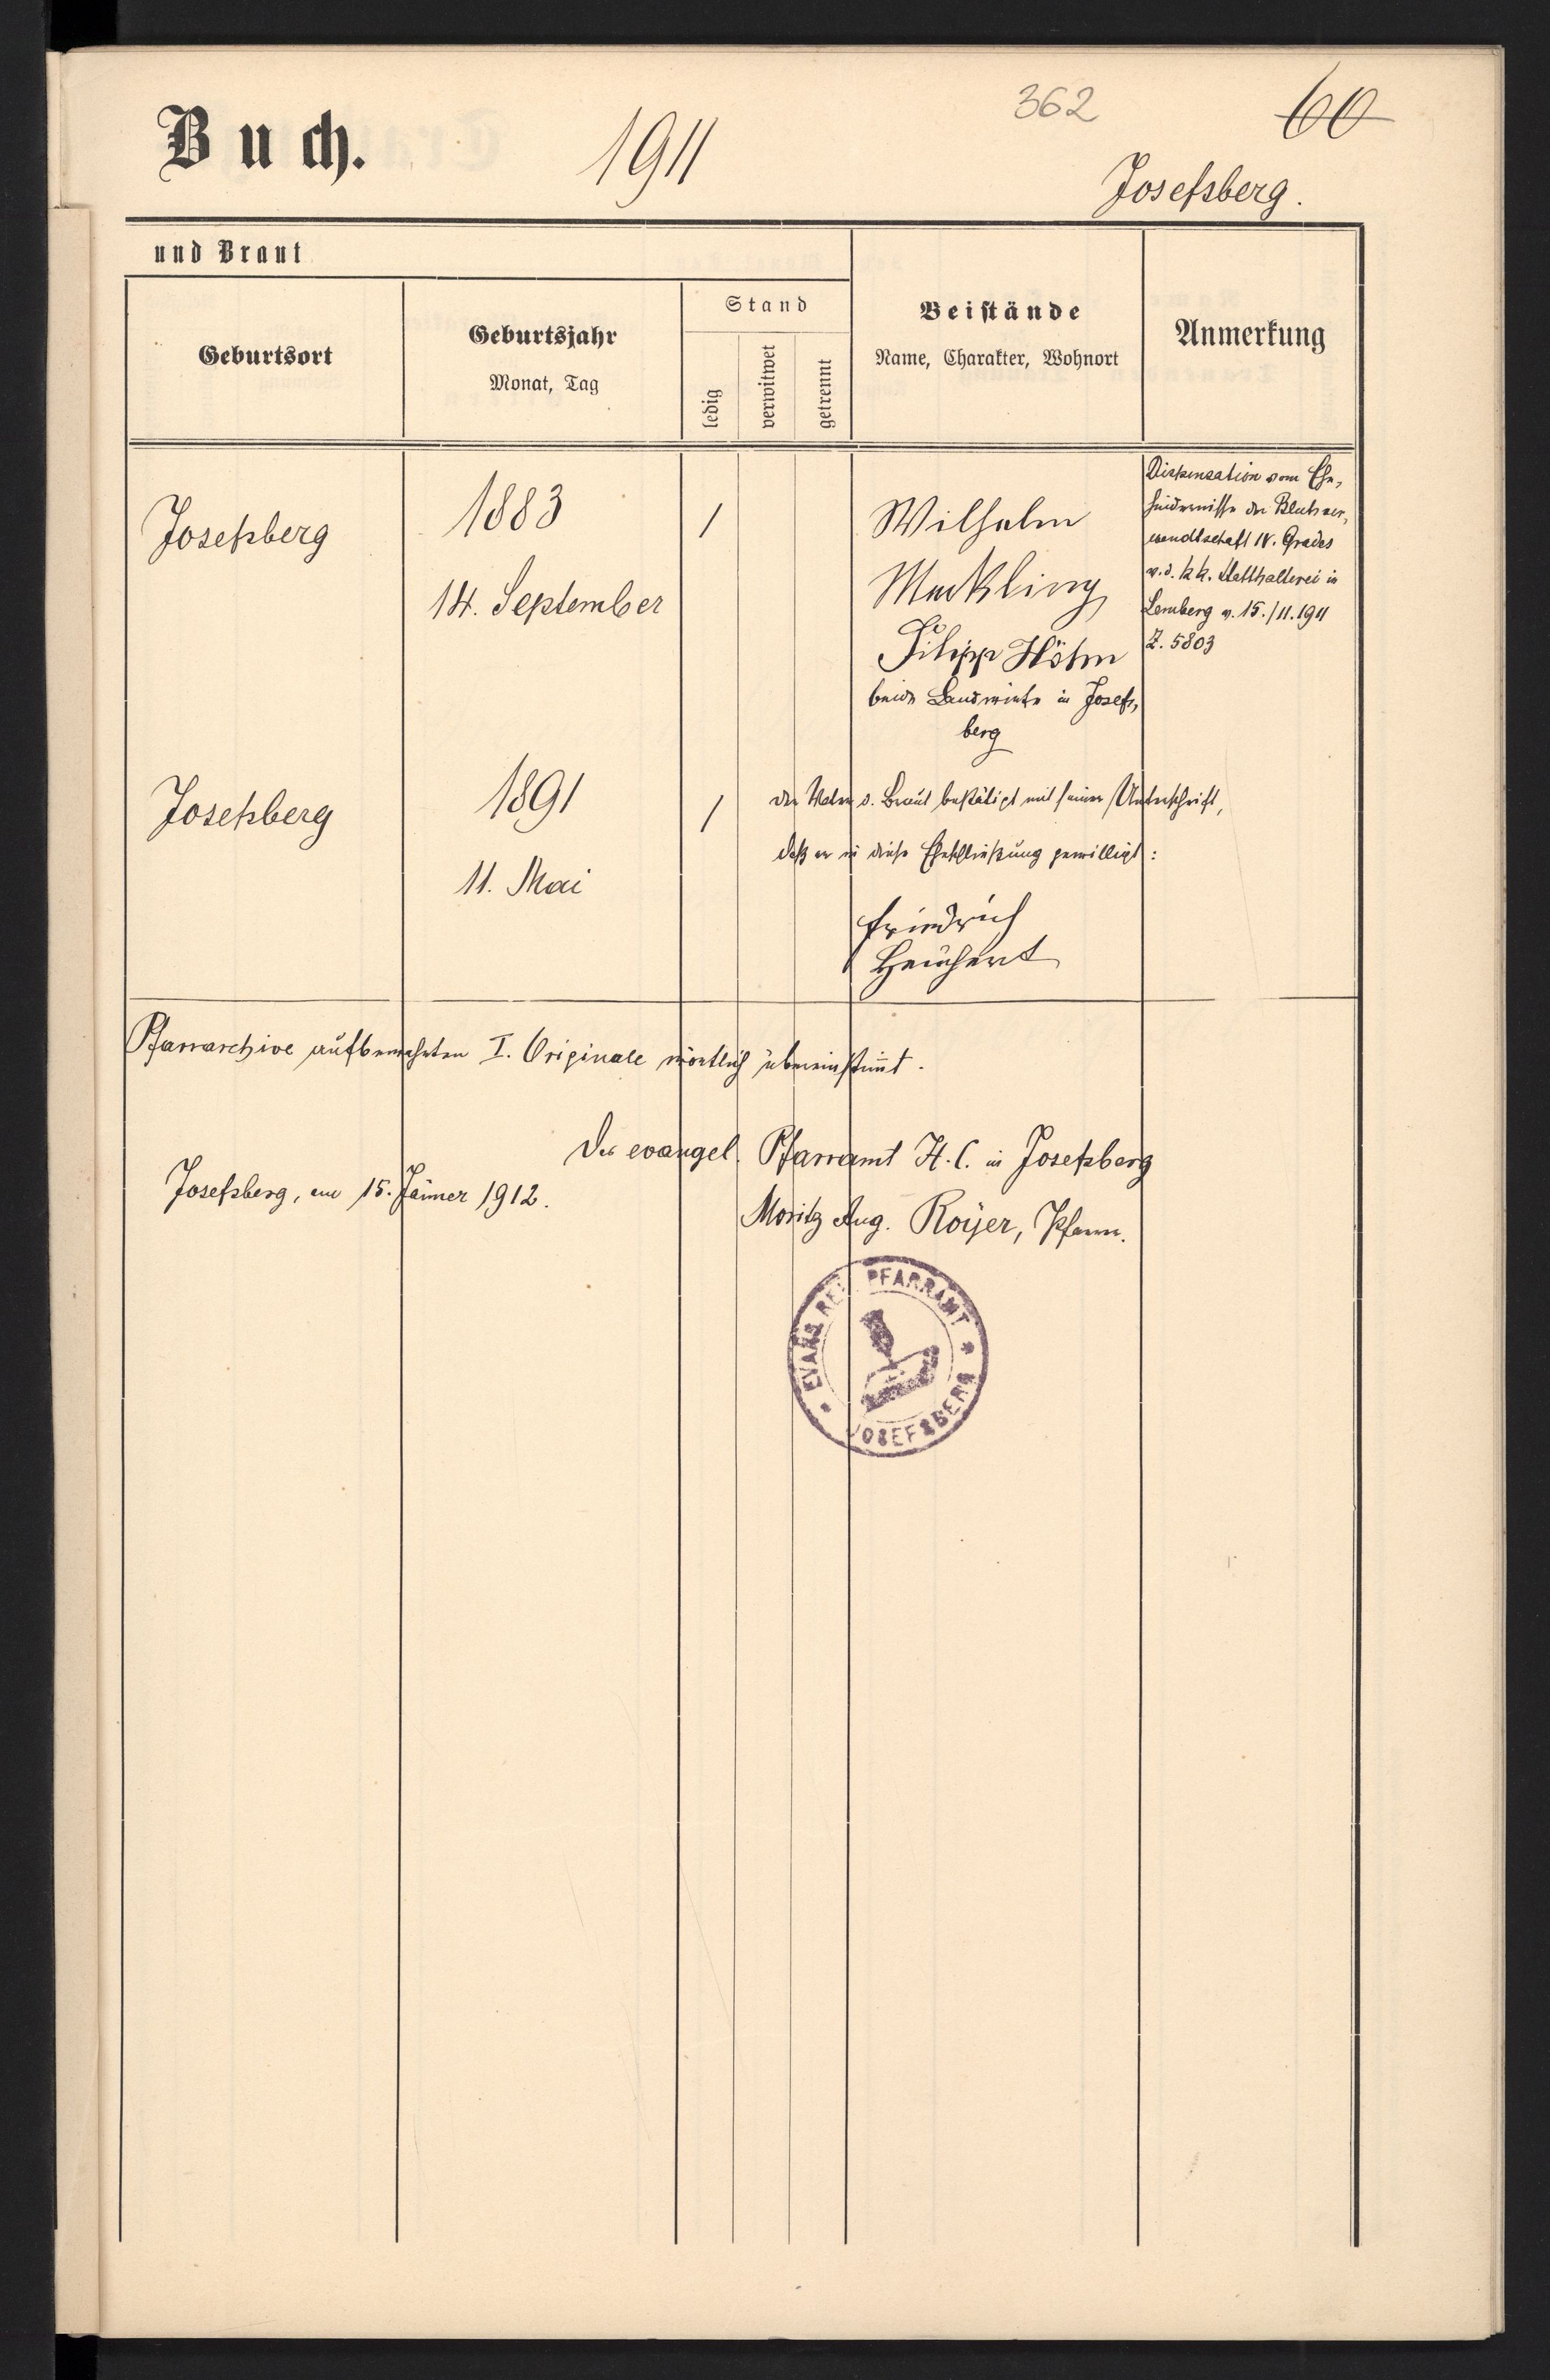 362
60
Buch.
1911
Josefsberg.
und Braut
Geburtsort
Geburtsjahr
Monat, Tag
Stand
ledig
verwitwet
getrennt
Beistände
Name, Charakter, Wohnort
Anmerkung
Josefsberg
1883
14. September
/
Wilhelm
Meckling
Filipp Höhn
beide Landwirte in Josefs,
berg
Dispensation vom Ehe,
hindernisse der Blutsver,
wandtschaft IV. Grades
v. d. k k. Statthalterei in
Lemberg v. 15./11.1911
Z. 5803
Josefsberg
1891
11. Mai
/
Der Vater d. Braut bestätigt mit seiner Unterschrift,
daß er in diese Eheschließung gewilligt:
Friedrich
Heuchert
Pfarrarchive aufbewahrten I. Originale wörtlich übereinstimt.
Das evangel. Pfarramt H. C. in Josefsberg
Josefsberg, am 15. Jänner 1912.
Moritz Aug. Royer, Pfarrer.
EVANG. REF. PFARRAMT
JOSEFSBERG